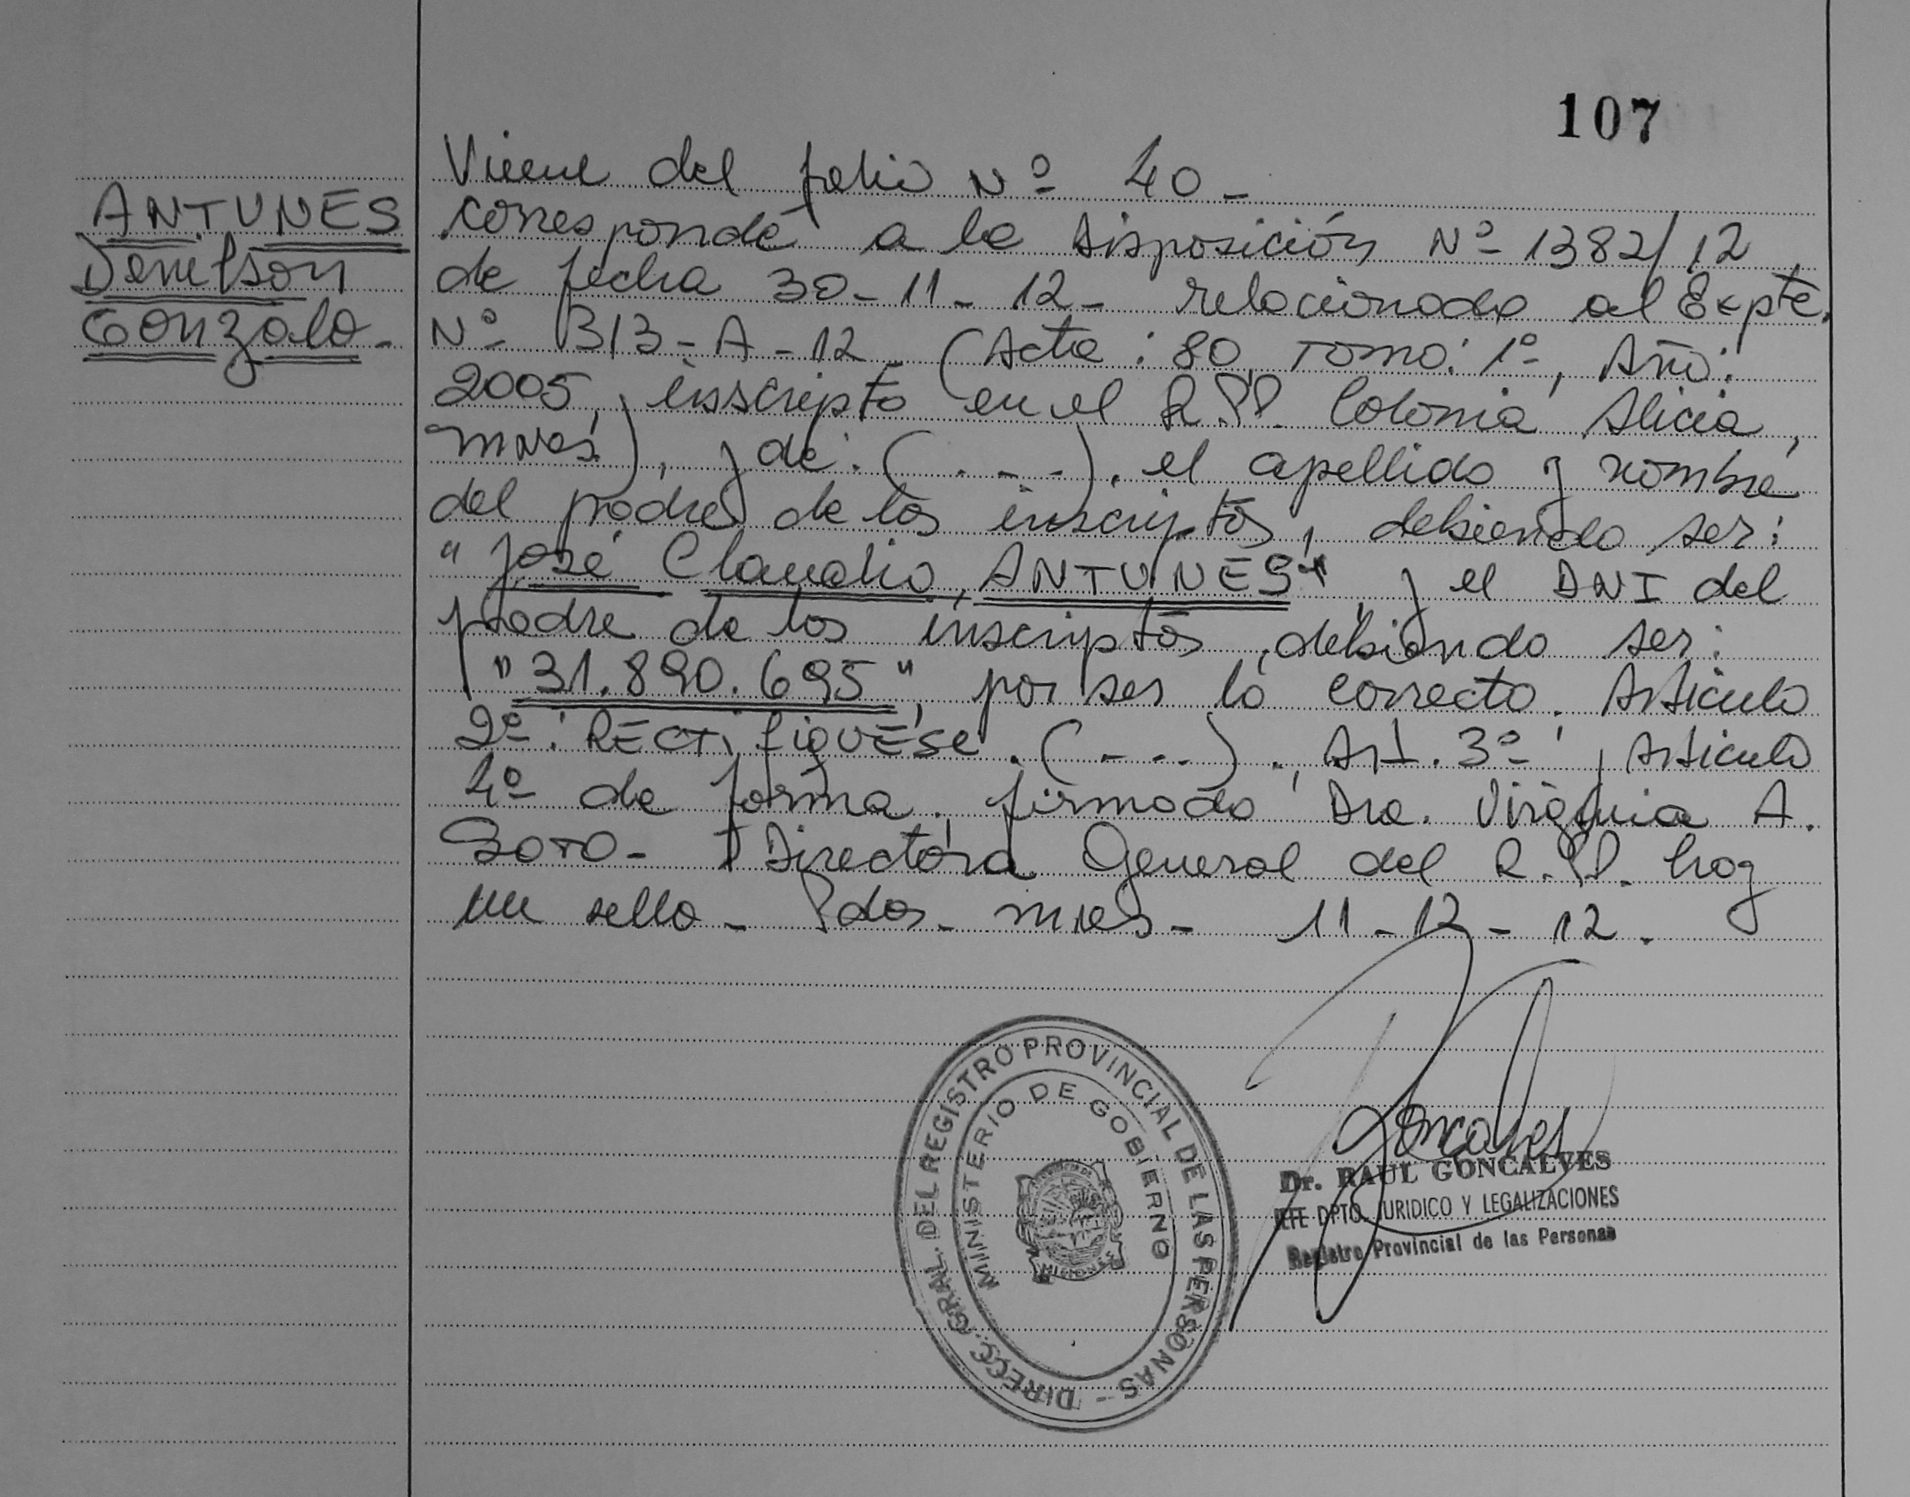 107
ANTUNES
Denilson
Gonzalo-
Viene del folio Nº 40-
corresponde a la Disposición Nº 1382/12
de fecha 30-11-12- relacionado al Expte.
Nº 1313-A-12 (Acta: 80, Tomo: 1º, Año:
2005, inscripto en el R.P.P. Colonia Alicia,
Mnes.), y de: (....), el apellido y nombre
del padre de los inscriptos, debiendo ser:
"José Claudio, ANTUNES", y el DNI del
padre de los inscriptos, debiendo ser:
"31.890.695", por ser lo correcto. Articulo
2º: RECTifiQUESE. (----)., Art. 3º, Articulo
4º de forma. firmado Dra. Virginia A.
SOTO- Directora General del R.P.P. hay
un sello- Pdos- Mnes- 11-12-12.
Goncalves
Dr. RAUL GONCALVES
JEFE DPTO. JURIDICO Y LEGALIZACIONES
Registro Provincial de las Personas
DIRECC. GRAL. DEL REGISTRO PROVINCIAL DE LAS PERSONAS -
MINISTERIO DE GOBIERNO
MISIONES